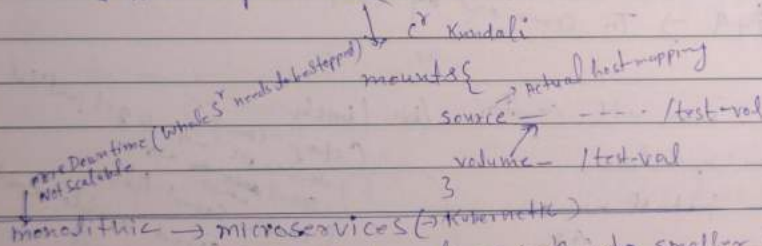 ↓ cʳ Kundali
mounts {
→ Actual host mapping
source — - - - - /test-vol
volume — /test-vol
}
more Downtime (Whole Sʳ needs to be stopped)
Not scalable
monolithic → microservices (→ Kubernetic)
smaller